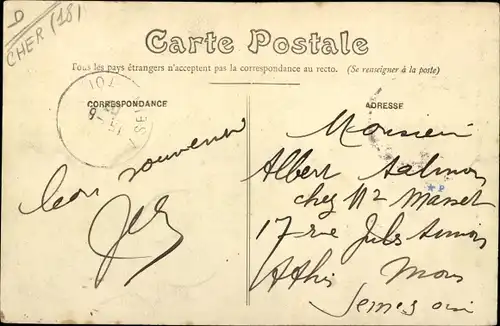 D
CHER (18)
Carte Postale
Tous les pays étrangers n'acceptent pas la correspondance au recto. (Se renseigner à la poste)
CORRESPONDANCE
ADRESSE
bon souvenir
Monsieur
Albert Salmon
chez Mr
17 rue Jules
Athis Mons
Seine et oise